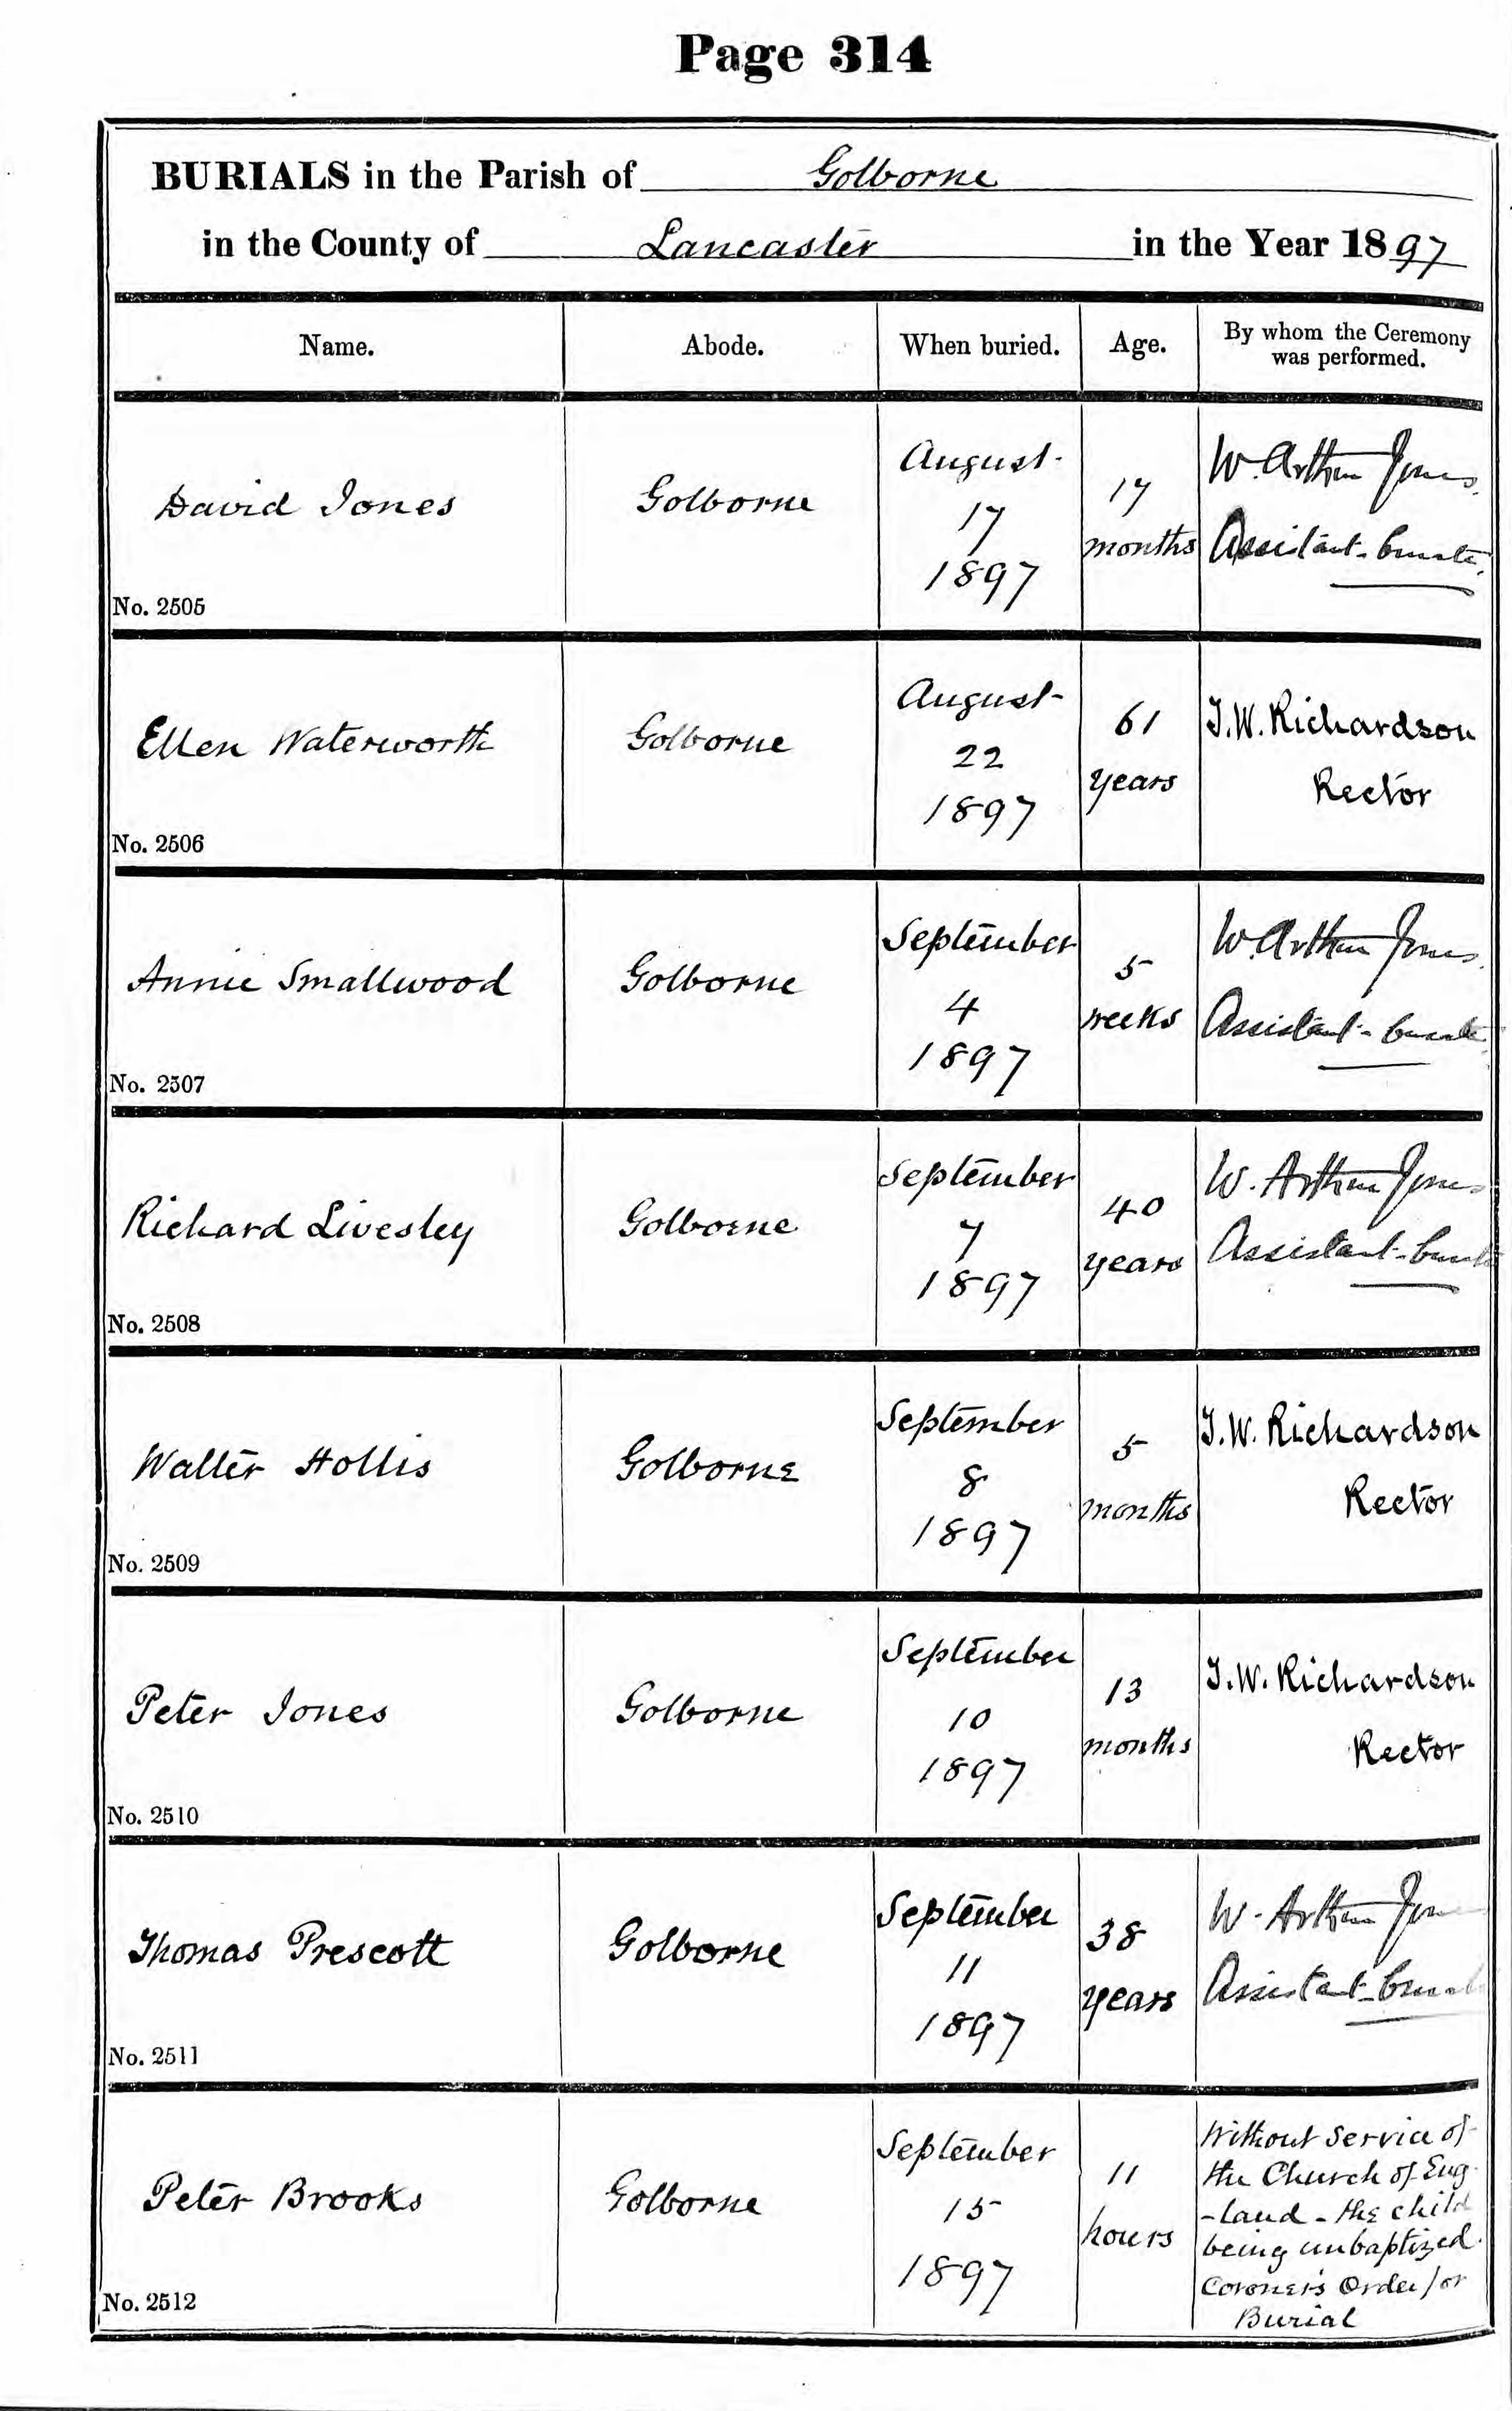 Page 314
BURIALS in the Parish of Golborne
in the County of Lancaster in the Year 1897
Name. Abode. When buried. Age. By whom the Ceremony
was performed.
David Jones Golborne August 17 1897 17 months W. Arthur Jones.
Assistant-Curate.
No. 2505
Ellen Waterworth Golborne August 22 1897 61 years T.W. Richardson
Rector
No. 2506
Annie Smallwood Golborne September 4 1897 5 weeks W. Arthur Jones.
Assistant-Curate
No. 2507
Richard Livesley Golborne September 7 1897 40 years W. Arthur Jones
Assistant-Curate
No. 2508
Walter Hollis Golborne September 8 1897 5 months T.W. Richardson
Rector
No. 2509
Peter Jones Golborne September 10 1897 13 months T.W. Richardson
Rector
No. 2510
Thomas Prescott Golborne September 11 1897 38 years W. Arthur Jones
Assistant-Curate
No. 2511
Peter Brooks Golborne September 15 1897 11 hours Without Service of
the Church of Eng
-land - the child
being unbaptized.
Coroner's Order for
Burial
No. 2512